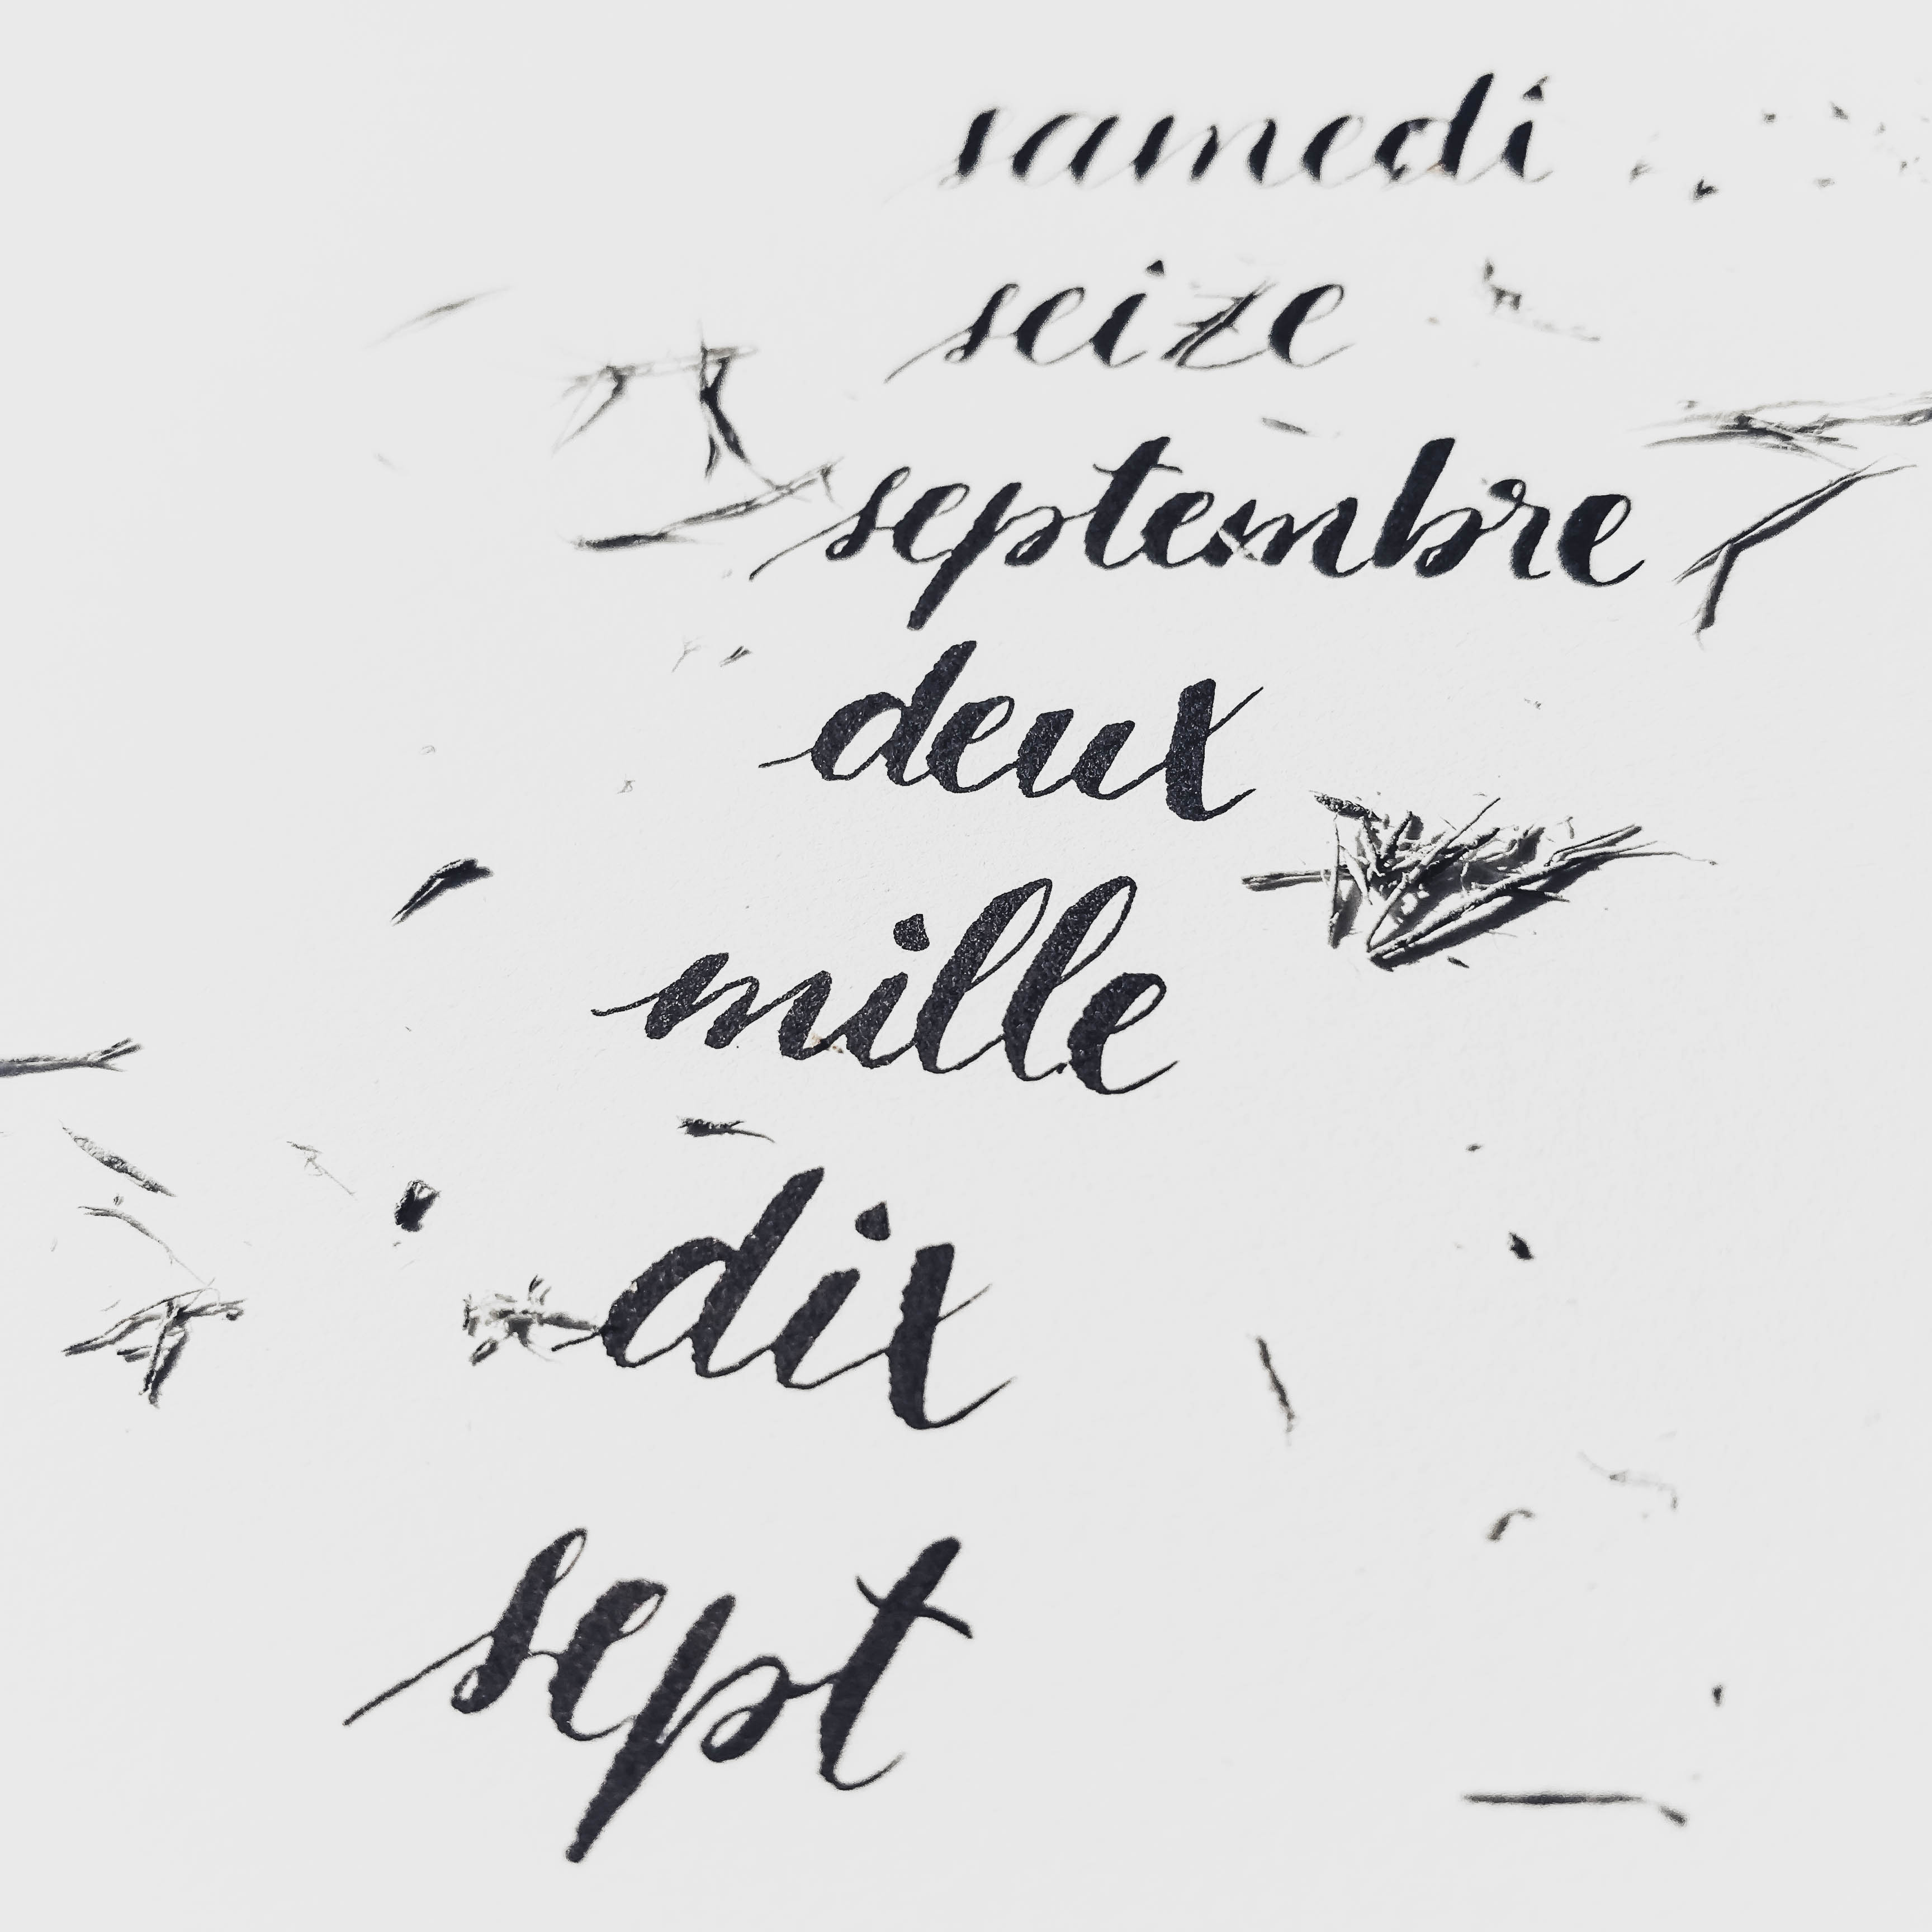 samedi
seize
septembre
deux
mille
dix
sept